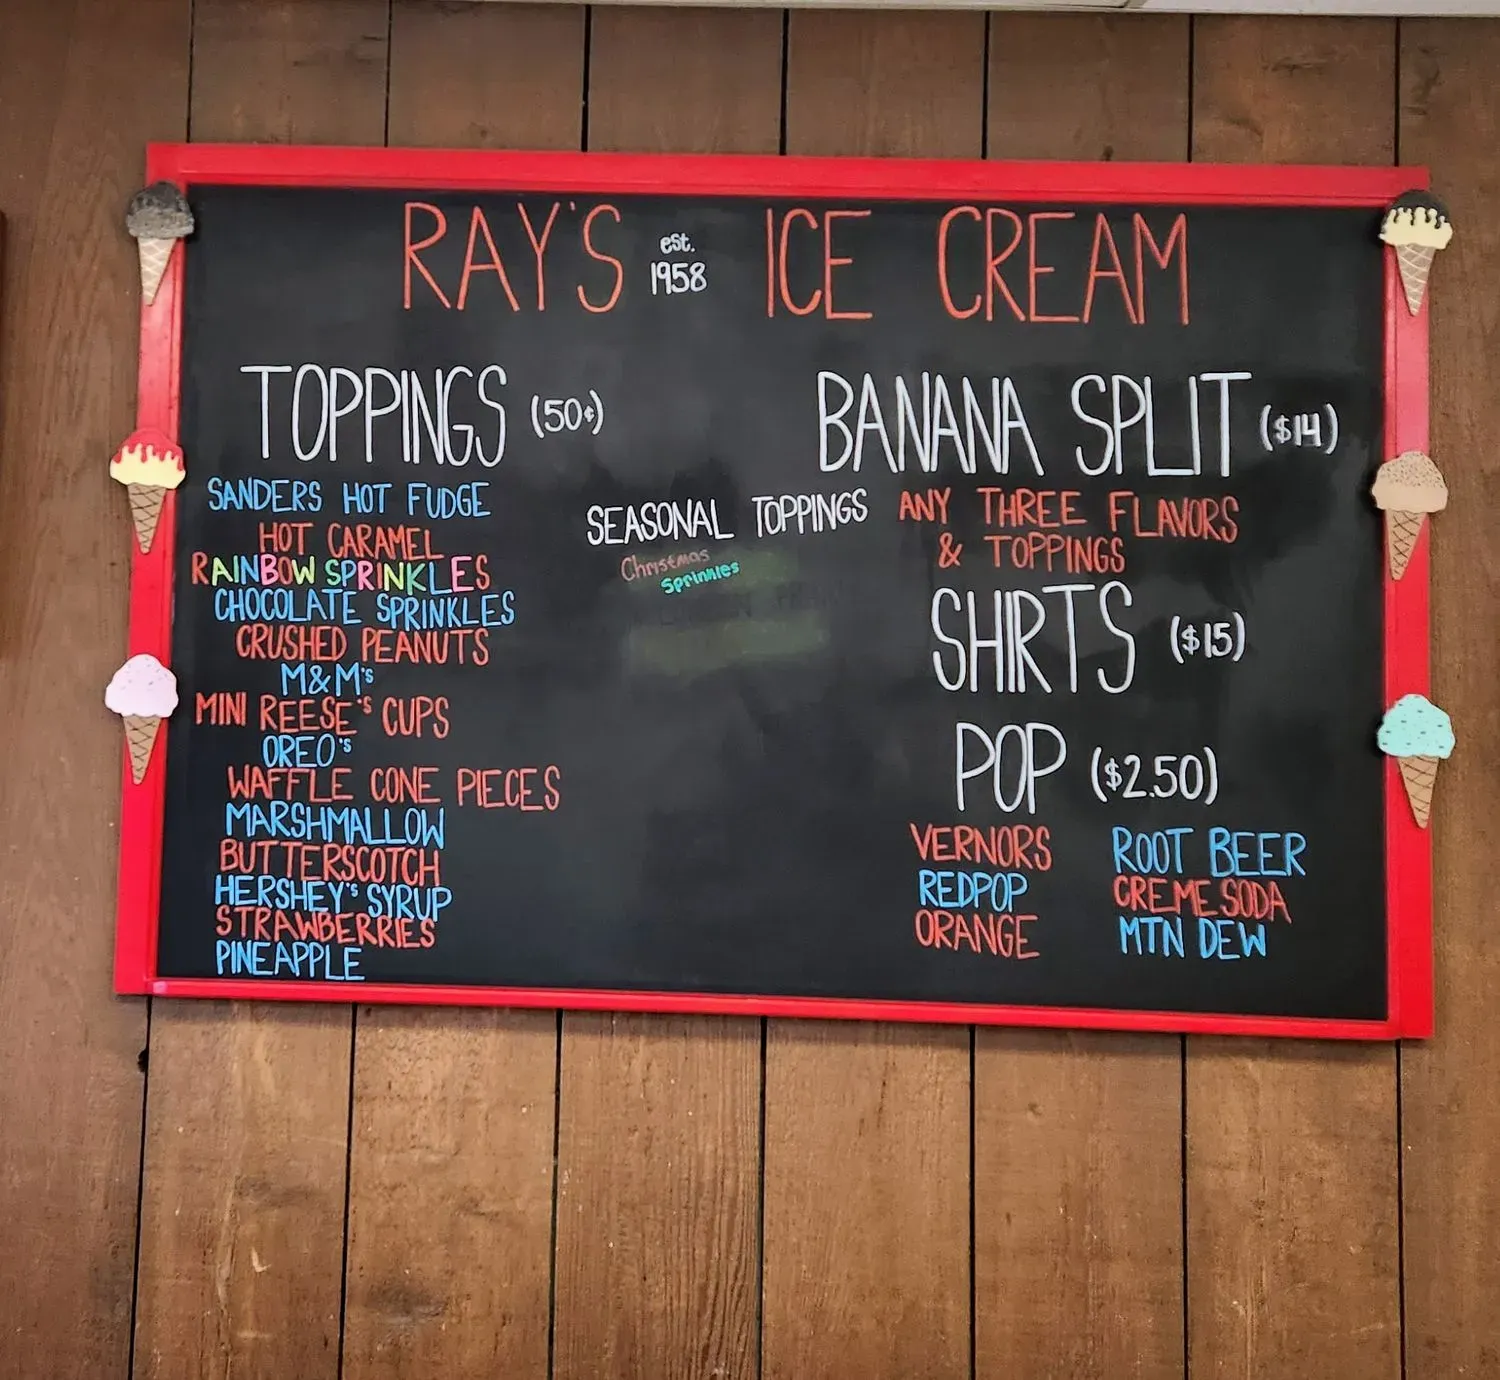 RAY'S est. 1958 ICE CREAM
TOPPINGS (50¢)
SANDERS HOT FUDGE
HOT CARAMEL
RAINBOW SPRINKLES
CHOCOLATE SPRINKLES
CRUSHED PEANUTS
M&M's
MINI REESE's CUPS
OREO's
WAFFLE CONE PIECES
MARSHMALLOW
BUTTERSCOTCH
HERSHEY's SYRUP
STRAWBERRIES
PINEAPPLE
SEASONAL TOPPINGS
Christmas
Sprinkles
BANANA SPLIT ($14)
ANY THREE FLAVORS
& TOPPINGS
SHIRTS ($15)
POP ($2.50)
VERNORS ROOT BEER
REDPOP CREME SODA
ORANGE MTN DEW